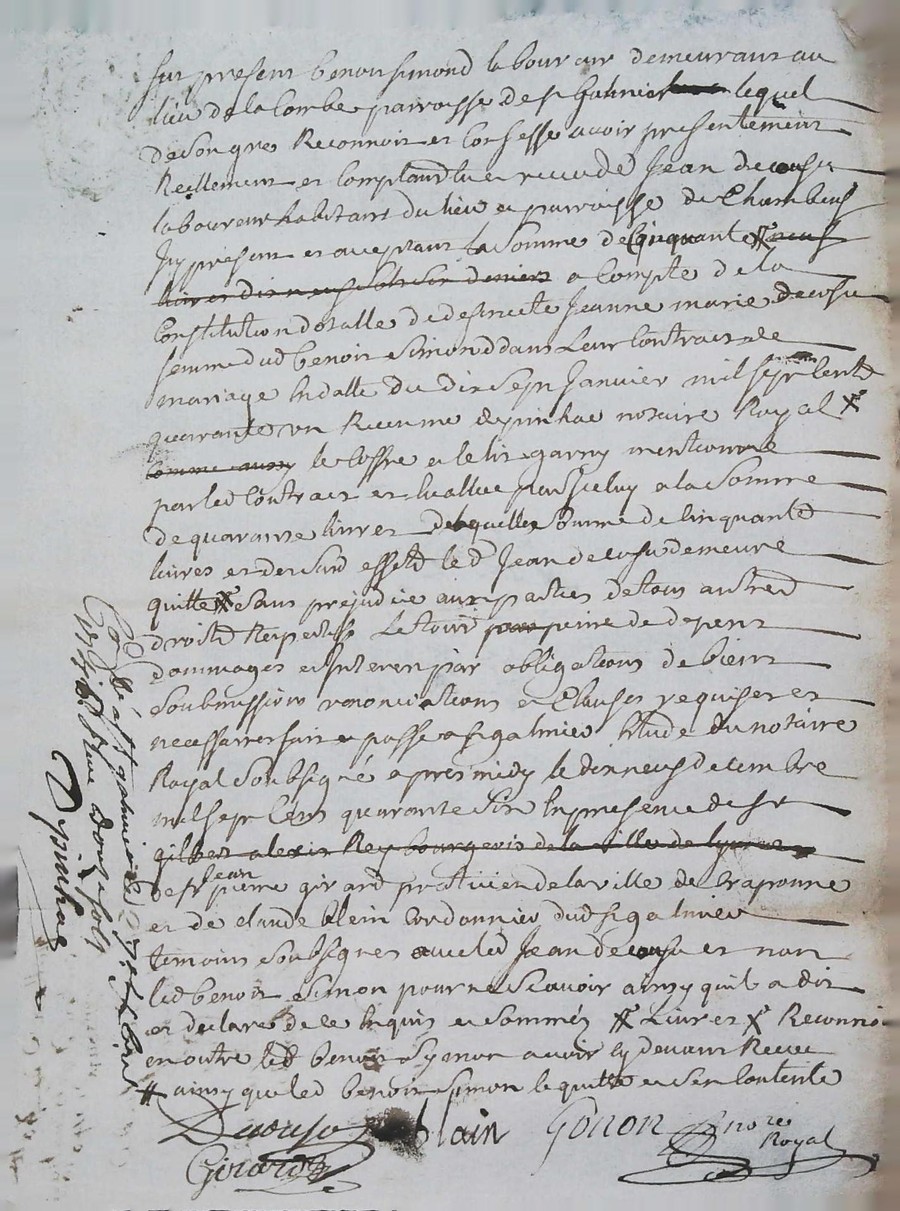 fut present benoit simond laboureur demeurant au
lieu de la Combe parroisse de st Galmier lequel
de son gre Reconnoit et Confesse avoir presentement
Reellement et Comptand eu et receu de Jean decousu
laboureur habitant du lieu et parroisse de Chambeuf
Icy present et acceptant la somme de Cinquante # neuf
livres dix neuf sols six deniers a Compte de la
Constitution dotalle de deffuncte Jeanne marie decousu
femme dud benoit Simond dans Leur Contract de
mariage En datte du dix sept Janvier mil sept Cents
quarante un Receu me depinhac notaire Royal X
Comme aussy le Coffre et le lit garny mentionné
par led Contract et Evallué par Iceluy a la Somme
de quarante livres de laquelle Somme de Cinquante
livres et desd effets led Jean decousu demeure
quitte # Sans prejudice aux parties de tous autres
droits Respectifs Le tout peine de depens
dommages et Interets par obligations de biens
Soubmissions renonciations et Clauses requises et
necessaires fait et passé a st galmier Etude du notaire
Royal Soubsigné apres midy le dix neuf decembre
mil sept Cents quarante Six En presence de sr
gilbert alexis Rey bourgeois de la ville de
de sr Jean pierre girard praticien de la ville de Craponne
et de Claude blein Cordonnier dud st galmier
temoins Soubsignes avec led Jean decousu et non
led benoit Simon pour ne Scavoir ainsy quil a dit
et declaré de ce Enquis et Sommés # Livres X Reconnoit
en outre led benoit Symon avoir cy devant Receu
# ainsy que led benoit Simon le quitte et sen Contente
Decousu blain Gonon nore
Royal
Girard
Collé a st galmier le
Depinhac